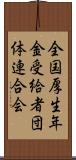 全国厚生年
金受給者団
体連合会